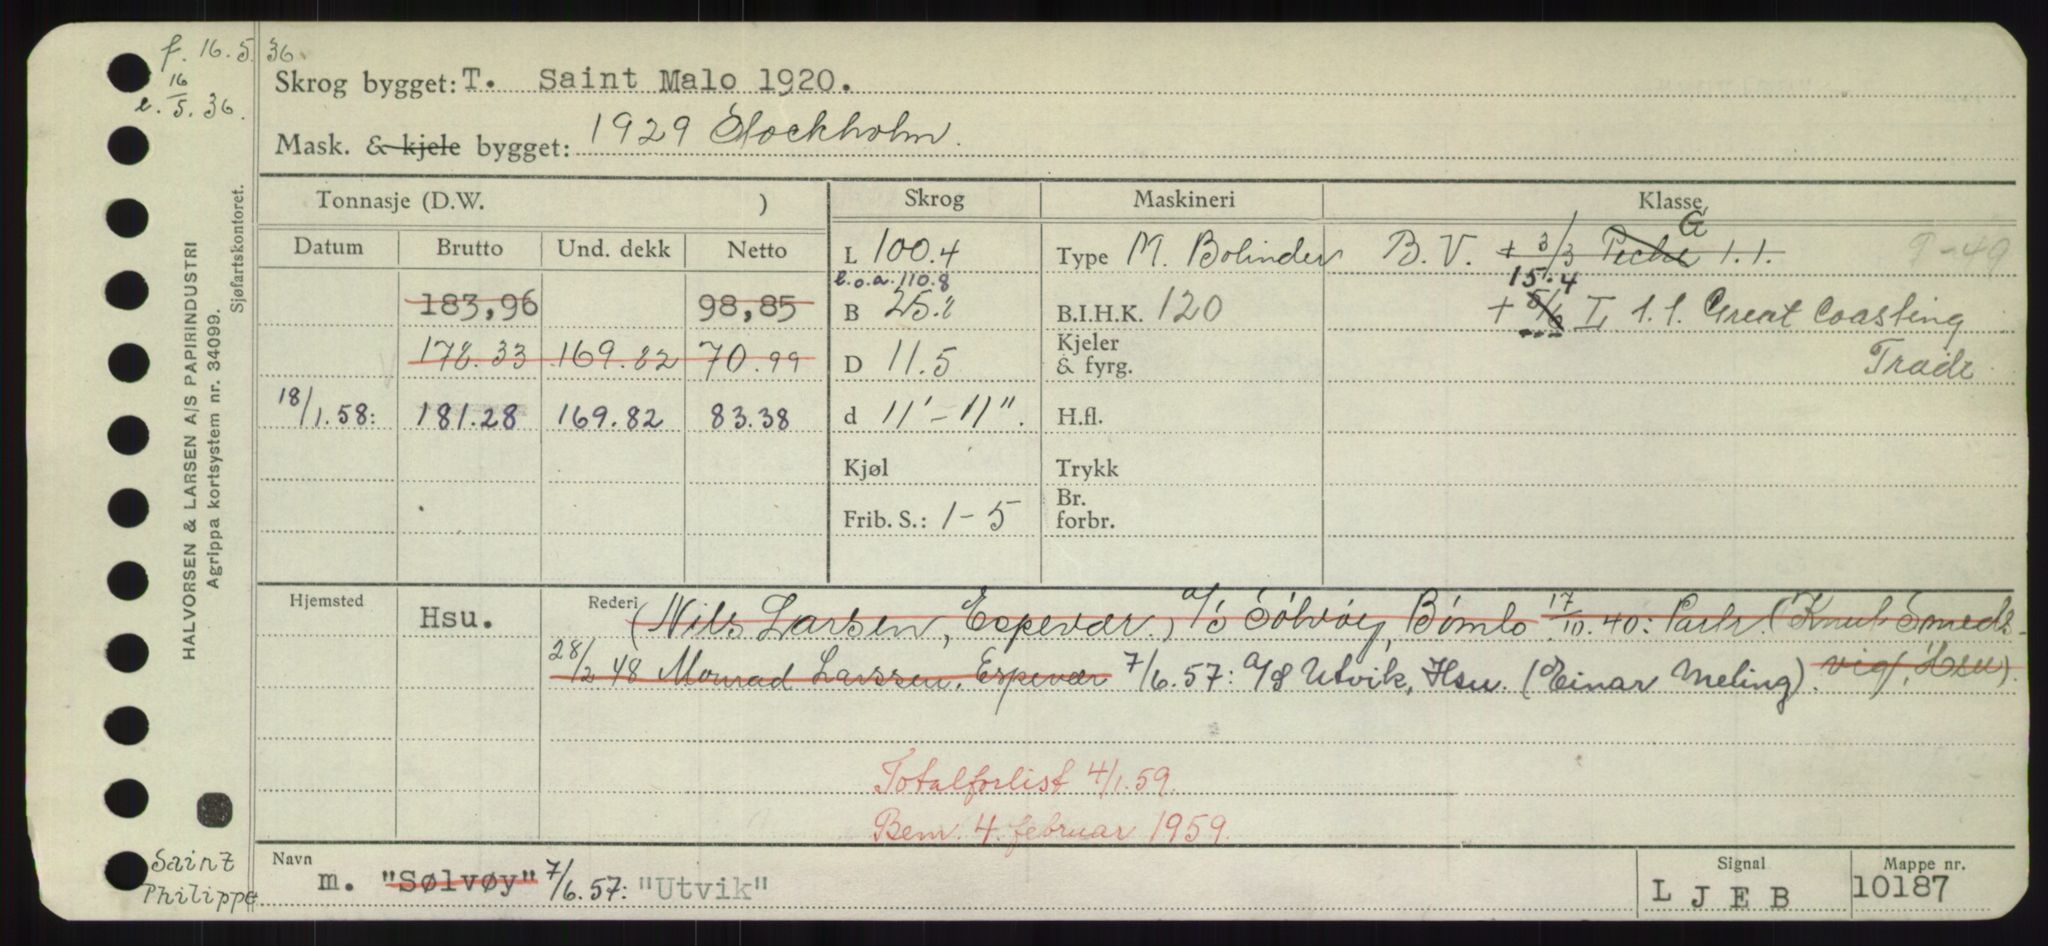 f. 16.5.36
16
e. 5. 36.
Skrog bygget: T. Saint Malo 1920.
Mask. & kjele bygget: 1929 Stockholm.
Tonnasje (D.W. )
Skrog
Maskineri
Klasse
Datum Brutto Und. dekk Netto
L 100.4
Type M. Bolinder
B. V. + 3/3 Peche G 1.1.
9-49
l.o.a. 110.8
15.4
183,96 98,85
B 25.2
B.I.H.K. 120
+ 5/6 I 1.1. Great Coasting
Trade
178.33 169.82 70.99
D 11.5
Kjeler
& fyrg.
18/1.58: 181.28 169.82 83.38
d 11'-11".
H.fl.
Kjøl
Trykk
Frib. S.: 1-5
Br.
forbr.
Hjemsted Hsu.
Rederi (Nils Larsen, Espevær.) A/S Sølvøy, Bømlo 17/10.40: Partr. (Knut Smeds-
vig, Hsu).
28/2 48 Monrad Larssen, Espevær 7/6.57: A/S Utvik, Hsu. (Einar Meling).
Totalforlist 4/1.59.
Bem. 4. februar 1959.
Navn m. "Sølvøy" 7/6.57: "Utvik"
Signal
L J E B
Mappe nr.
10187
Saint
Philippe
HALVORSEN & LARSEN A/S PAPIRINDUSTRI
Agrippa kortsystem nr. 34099.
Sjøfartskontoret.